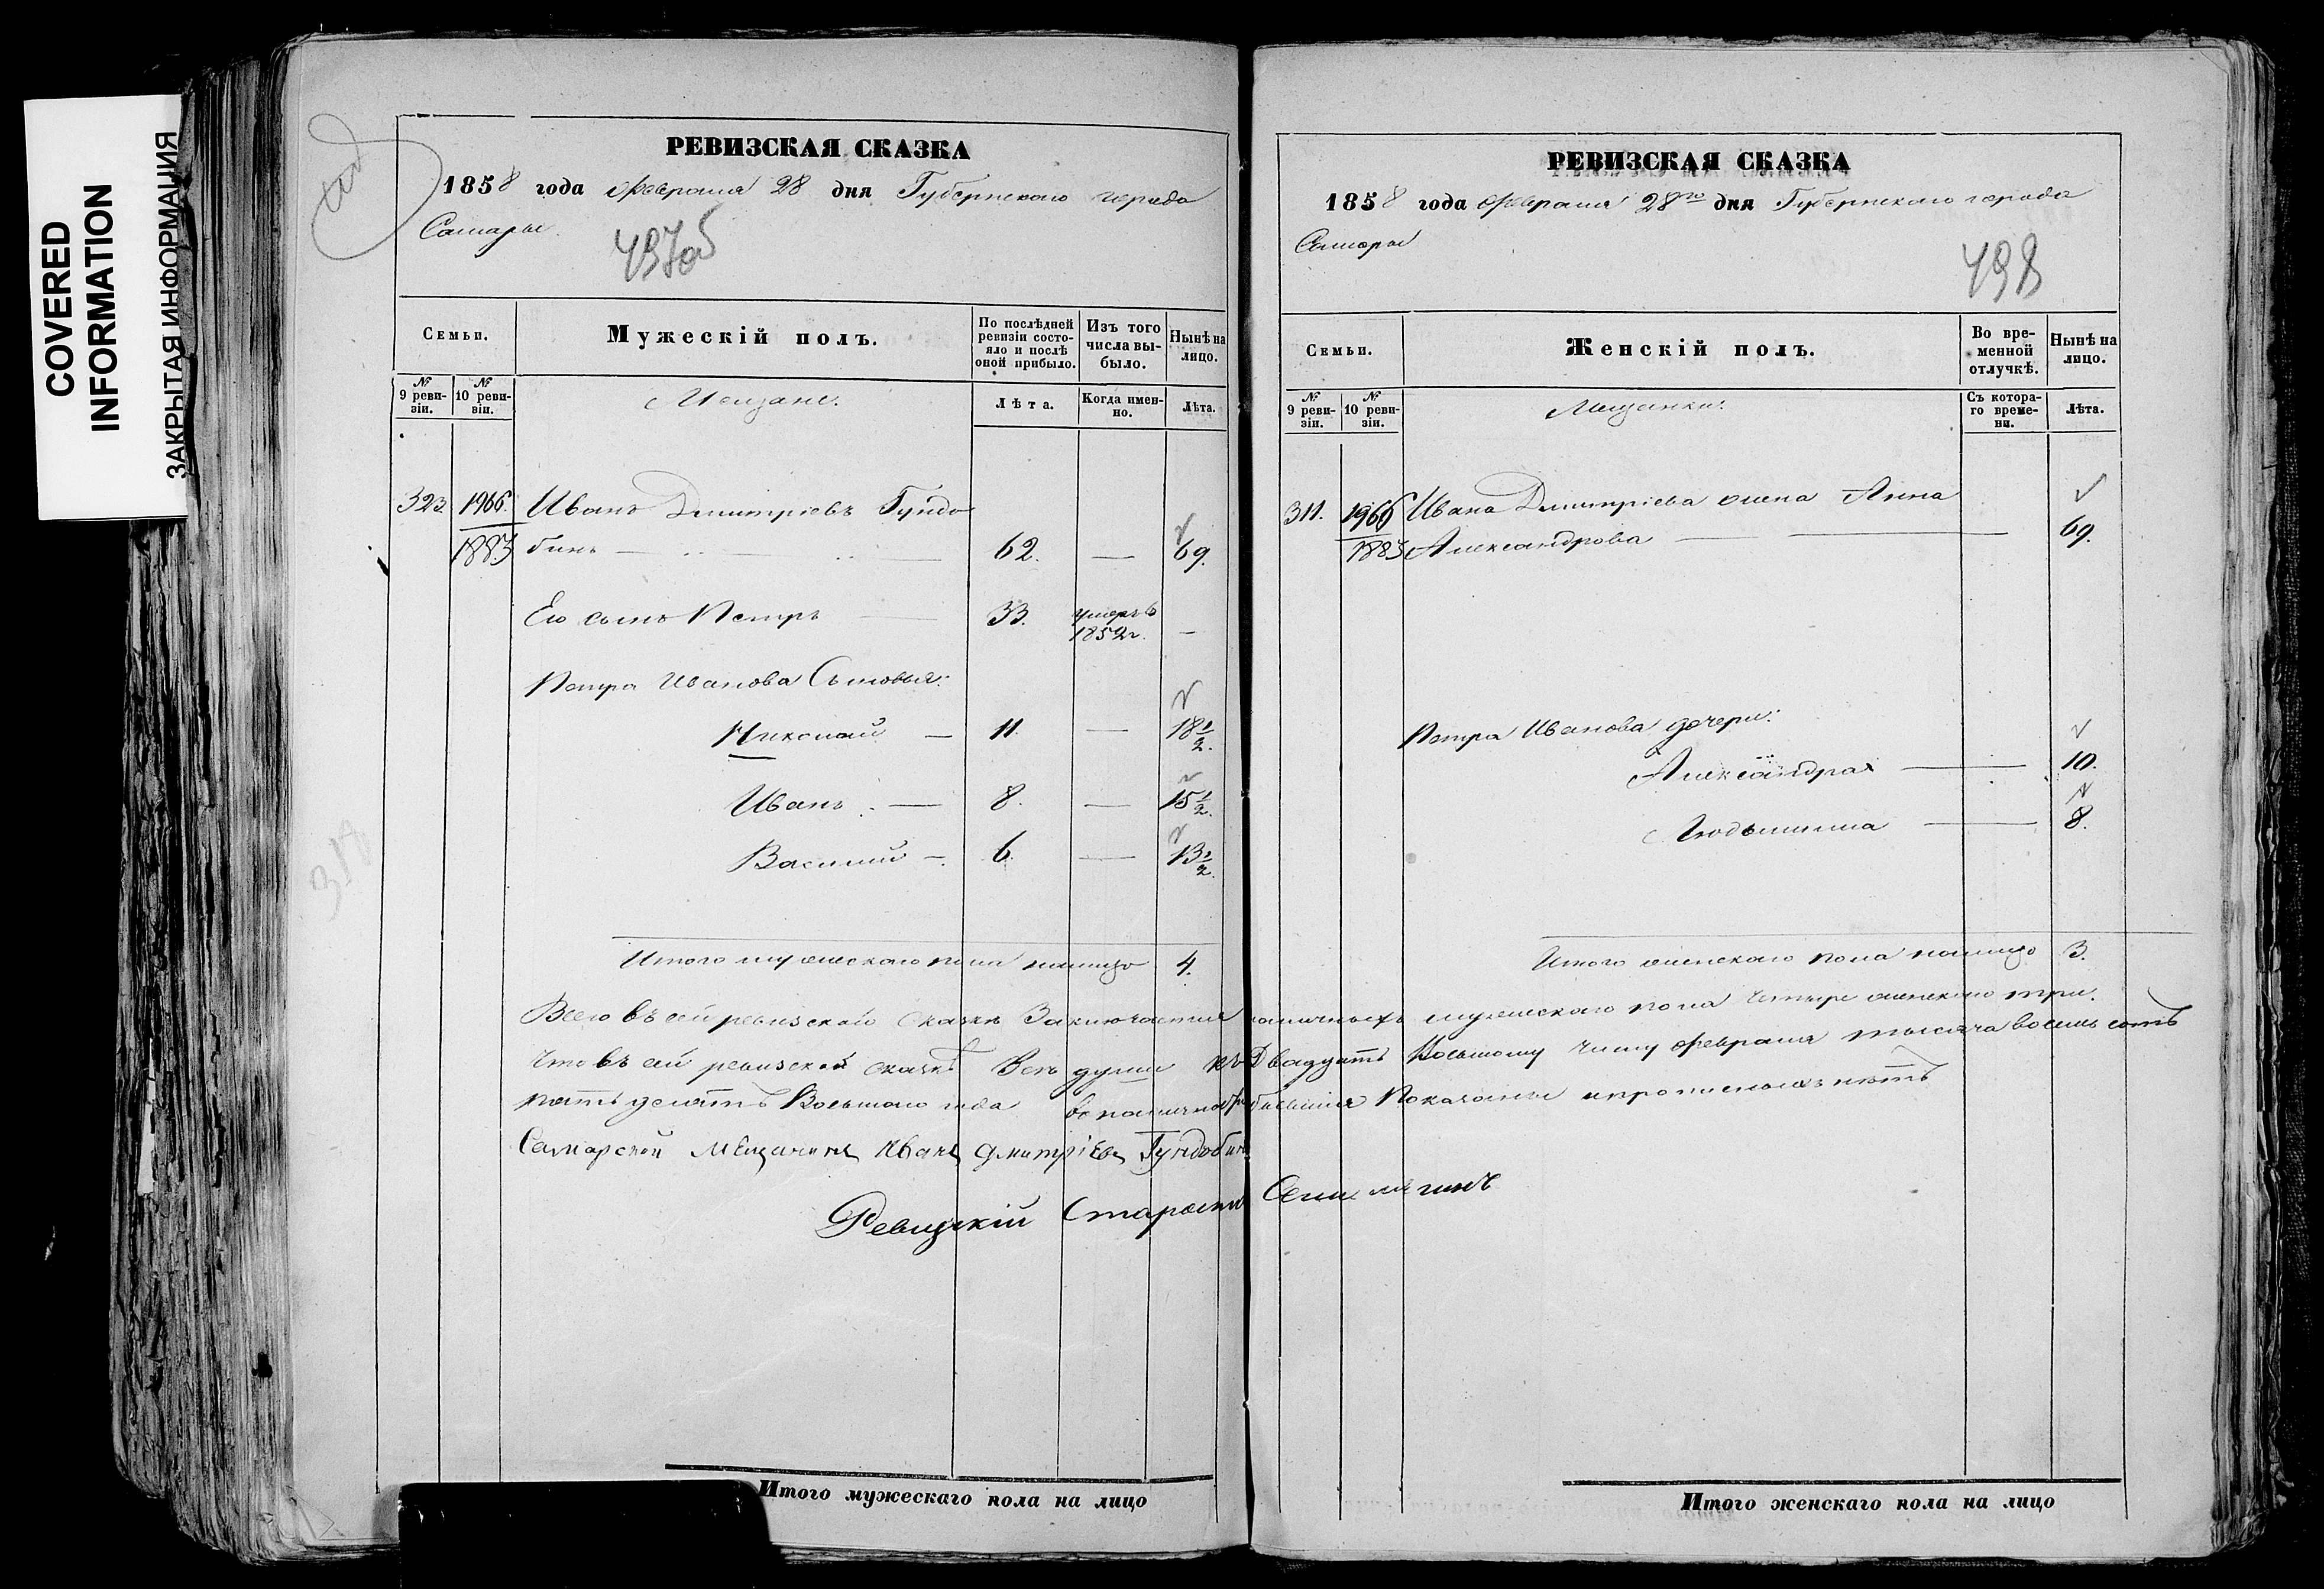 COVERED
INFORMATION
ЗАКРЫТАЯ ИНФОРМАЦИЯ
РЕВИЗСКАЯ СКАЗКА
1858 года Февраля 28 дня Губернскаго города
Самары
497об
Семьи.
Мужескій полъ.
По послѣдней ревизіи состояло и послѣ оной прибыло.
Изъ того числа выбыло.
Нынѣ на лицо.
№ 9 ревизіи.
№ 10 ревизіи.
Мещане.
Лѣта.
Когда именно.
Лѣта.
323. 1966. Иванъ Дмитріевъ Гундо
1883 бинъ 62. — 69.
Его сынъ Петръ 33. умеръ в 1852 г. —
Петра Иванова Сыновья:
Николай — 11. — 18 1/2.
Иванъ — 8. — 15 1/2.
Василий — 6. — 13 1/2.
Итого мужескаго пола налицо 4.
РЕВИЗСКАЯ СКАЗКА
1858 года Февраля 28го дня Губернскаго города
Самары
498
Семьи.
Женскій полъ.
Во временной отлучкѣ.
Нынѣ на лицо.
№ 9 ревизіи.
№ 10 ревизіи.
Мещанки.
Съ котораго времени.
Лѣта.
311. 1966 Ивана Дмитріева жена Анна
1883 Александрова — 69.
Петра Иванова дочери:
Александра — 10.
8.
Итого женскаго пола налицо 3.
Всего въ сей ревизской сказке Заключается наличныхъ мужескаго пола четыре женскаго три.
Что въ сей ревизской сказкѣ Всѣ души къ Двадцать Восьмому числу февраля тысяча восемь сотъ
пятьдесятъ Восьмаго года в наличности бывшия Показаны и прописныхъ нѣтъ
Самарской мещанинъ Иванъ Дмитріевъ Гундобинъ
Ревизскій Староста
Итого мужескаго пола на лицо
Итого женскаго пола на лицо